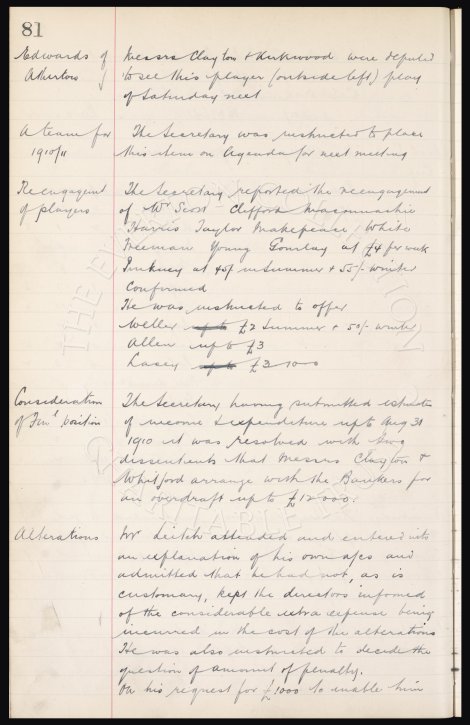 81
Edwards of Atherton
Messrs Clayton & Kirkwood were deputed
to see this player (outside left) play
of Saturday next
A team for 1910/11
The Secretary was instructed to place
this item on Agenda for next meeting
Reengagemt of players
The Secretary reported the reengagement
of Wm Scott Clifford Maconnachie
Harris Taylor Makepeace White
Freeman Young Gourlay at £4 per week
Pinkney at 45/- Summer & 55/- winter
Confirmed
He was instructed to offer
Weller up to £2 Summer & 50/- winter
Allen up to £3
Lacey up to £3
Consideration of Fin¹ position
The Secretary having submitted estimate
of income & expenditure up to Aug 31
1910 it was resolved with two
dissentients that Messrs Clayton &
Whitford arrange with the Bankers for
an overdraft up to £12000.
Alterations
Mr Leitch attended and entered into
an explanation of his own a/cs and
admitted that he had not, as is
customary, kept the directors informed
of the considerable extra expense being
incurred in the cost of the alterations
He was also instructed to decide the
question of amount of penalty.
On his request for £1000 to enable him